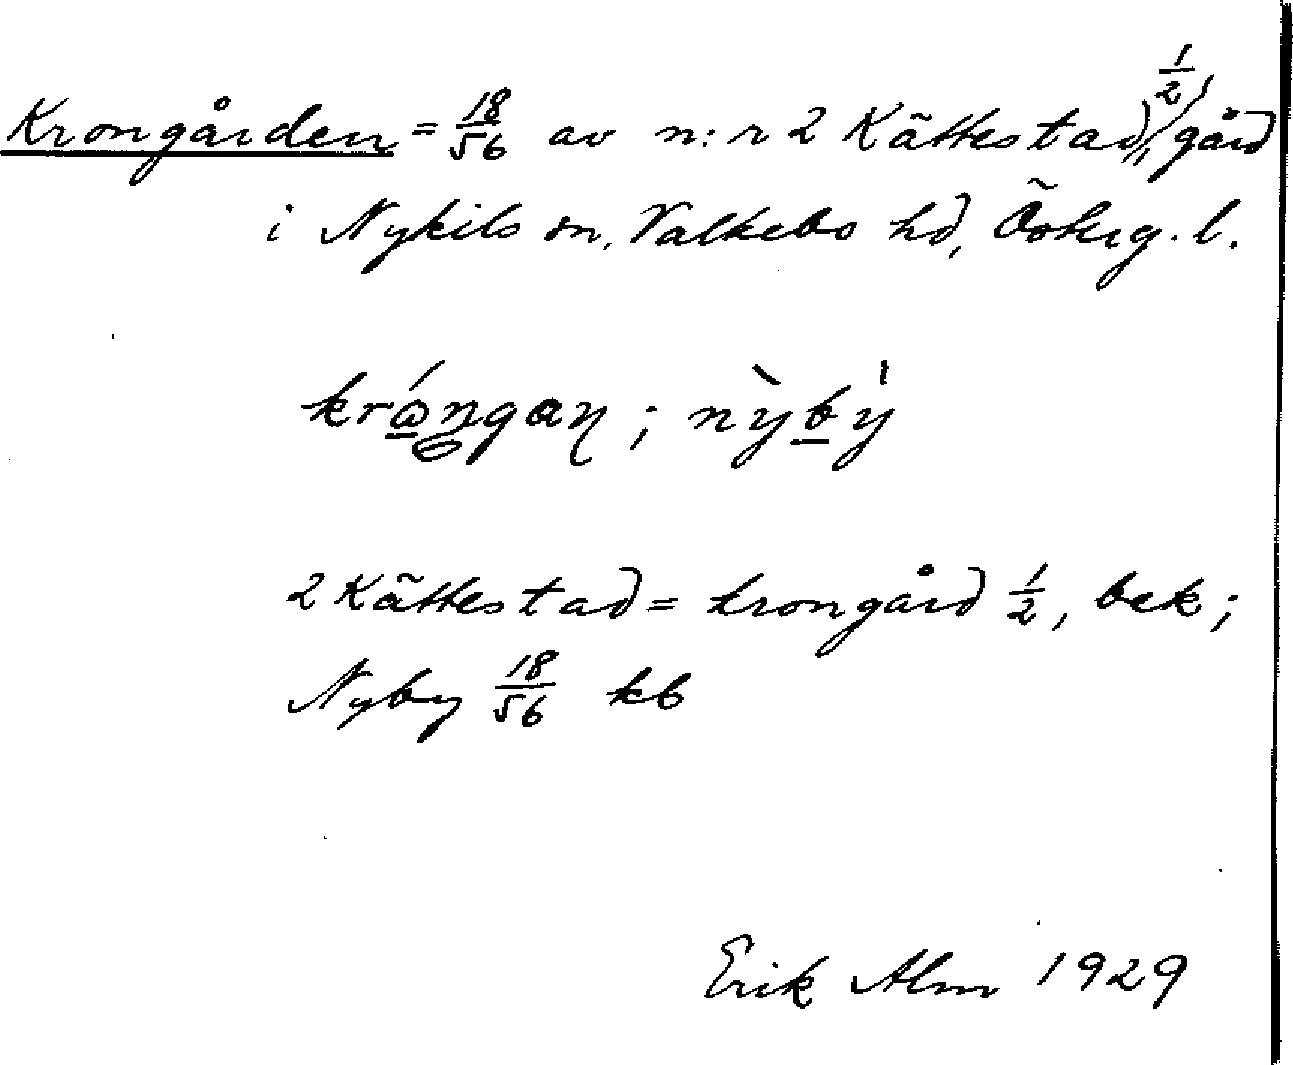 Krongården = 18/56 av n:r 2 Kättestad, 1/2 gård
i Nykils sn, Valkebo hd, Österg. l.
króngaṇ; nỳbý
2 Kättestad = krongård 1/2, bek;
Nyby 18/56 kb
Erik Alm 1929